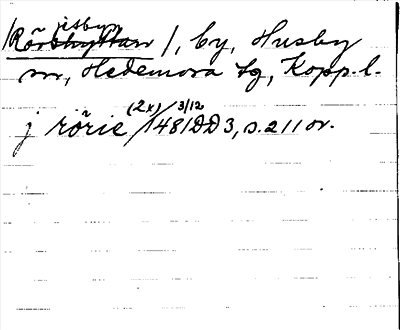 /Rörshyttan jesbyn/, by, Husby
sn, Hedemora tg, Kopp.l.
j rörie (2x) 3/12 1481 DD3, s. 211 ör.